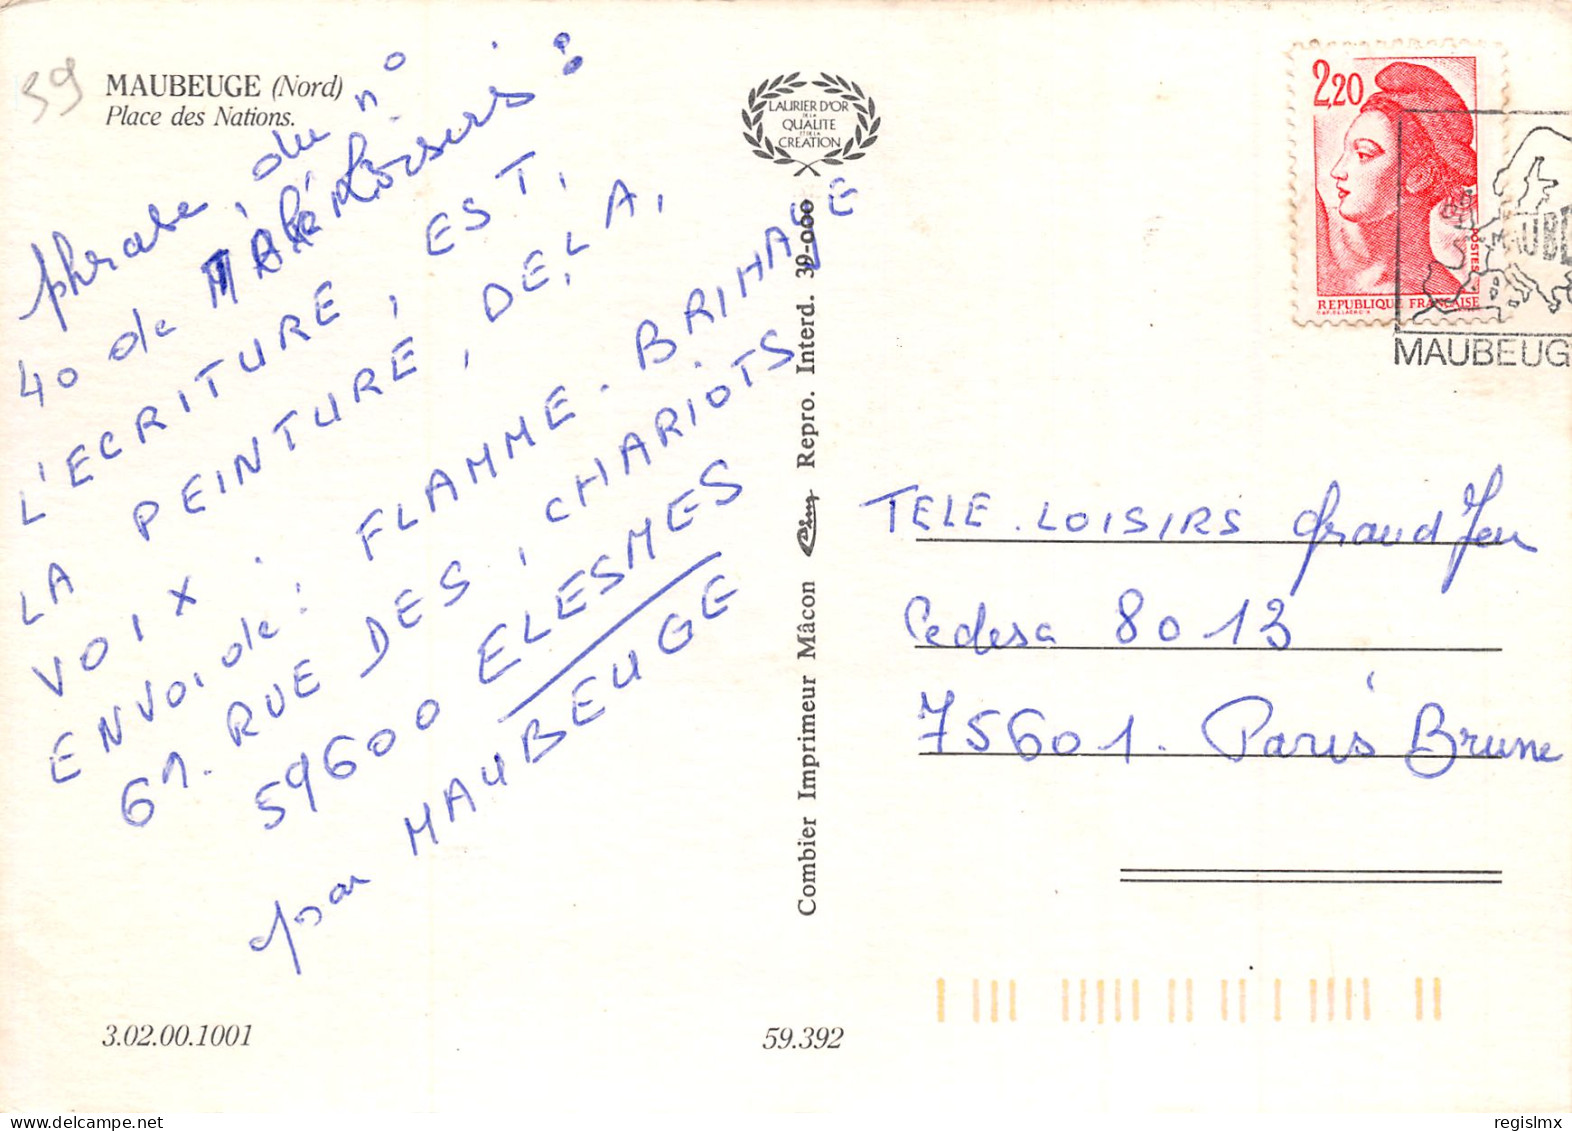 59
MAUBEUGE (Nord)
Place des Nations.
phrase, du n°
40 de Télé Loisirs :
L'ECRITURE, EST,
LA PEINTURE, DE, LA,
VOIX.
ENVOI, de : FLAMME. BRIHAYE
61. RUE DES, CHARIOTS
59600 ELESMES
par MAUBEUGE
3.02.00.1001
59.392
LAURIER D'OR
DE LA
QUALITE
ET DE LA
CREATION
Combier Imprimeur Mâcon Cim Repro. Interd. 39-000
2,20
POSTES
REPUBLIQUE FRANÇAISE
MAUBE
MAUBEUG
TELE. LOISIRS Grand Jeu
Cedesa 8013
75601. Paris Brune
regislmx